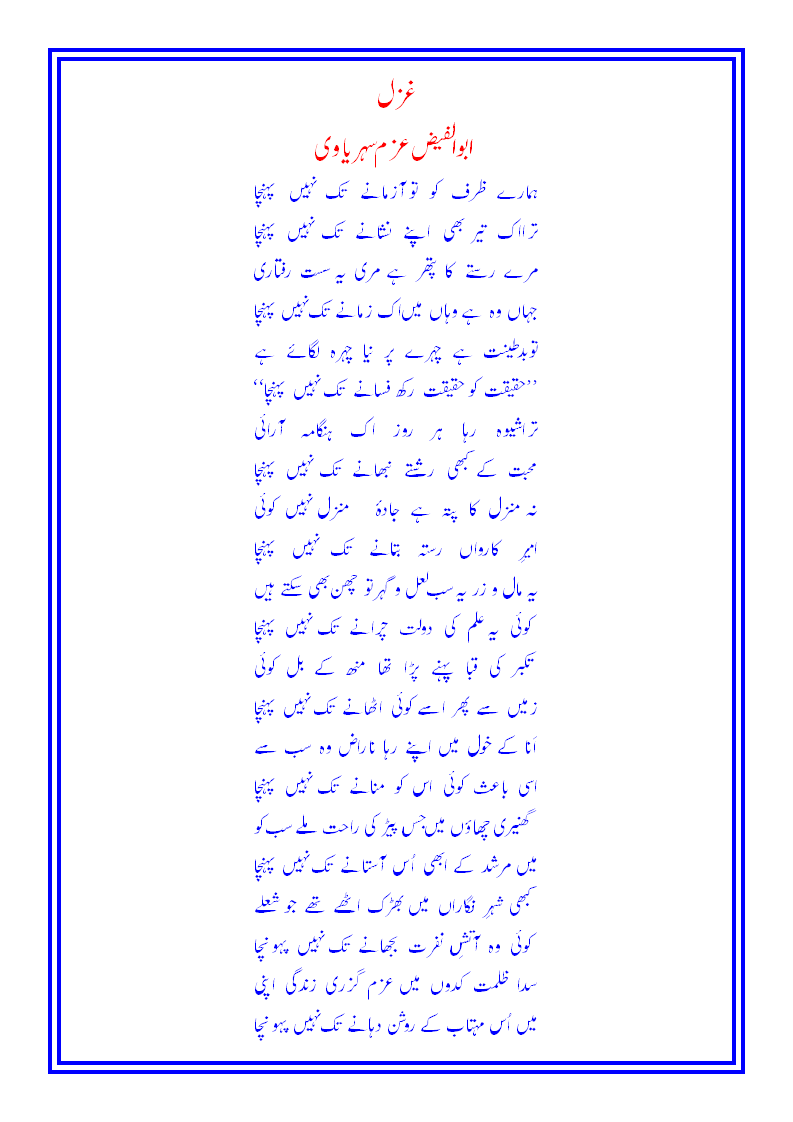 غزل
ابوالفیض عزم سہریاوی
ہمارے ظرف کو تو آزمانے تک نہیں پہنچا
ترا اک تیر بھی اپنے نشانے تک نہیں پہنچا
مرے رستے کا پتھر ہے مری یہ سست رفتاری
جہاں وہ ہے وہاں میں اک زمانے تک نہیں پہنچا
تو بدطینت ہے چہرے پر نیا چہرہ لگائے ہے
’’حقیقت کو حقیقت رکھ فسانے تک نہیں پہنچا‘‘
ترا شیوہ رہا ہر روز اک ہنگامہ آرائی
محبت کے کبھی رشتے نبھانے تک نہیں پہنچا
نہ منزل کا پتہ ہے جادۂ منزل نہیں کوئی
امیرِ کارواں رستہ بتانے تک نہیں پہنچا
یہ مال و زر یہ سب لعل و گہر تو چھن بھی سکتے ہیں
کوئی یہ علم کی دولت چرانے تک نہیں پہنچا
تکبر کی قبا پہنے پڑا تھا منھ کے بل کوئی
زمیں سے پھر اسے کوئی اٹھانے تک نہیں پہنچا
اَنا کے خول میں اپنے رہا ناراض وہ سب سے
اسی باعث کوئی اس کو منانے تک نہیں پہنچا
گھنیری چھاؤں میں جس پیڑ کی راحت ملے سب کو
میں مرشد کے ابھی اُس آستانے تک نہیں پہنچا
کبھی شہرِ نگاراں میں بھڑک اٹھے تھے جو شعلے
کوئی وہ آتشِ نفرت بجھانے تک نہیں پہونچا
سدا ظلمت کدوں میں عزم گزری زندگی اپنی
میں اُس مہتاب کے روشن دہانے تک نہیں پہونچا